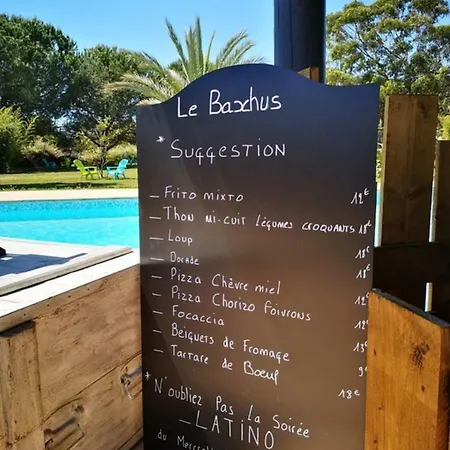 Le Bacchus
* Suggestion *
_ Frito mixto 12€
_ Thon mi-cuit légumes croquants 18€
_ Loup 18€
_ Dorade 18€
_ Pizza Chèvre miel 12€
_ Pizza Chorizo Poivrons 12€
_ Focaccia 13€
_ Beignets de Fromage 9€
_ Tartare de Bœuf 18€
* N'oubliez Pas La Soirée
_ LATINO _
du